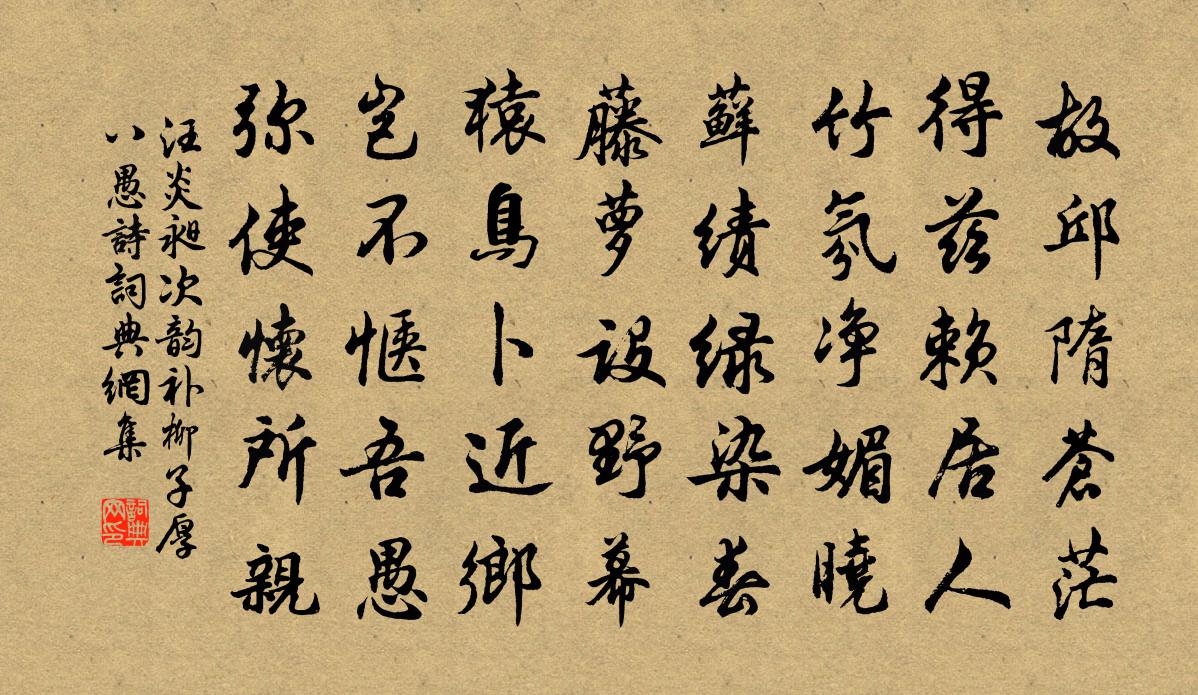 故邱隋蒼茫
得茲赖居人
竹氛净媚曉
蘚绩绿染春
藤萝設野幕
猿鳥卜近鄉
岂不惬吾愚
弥使懷所親
汪炎昶次韵补柳子厚
八愚詩詞典網集
詞典
网印